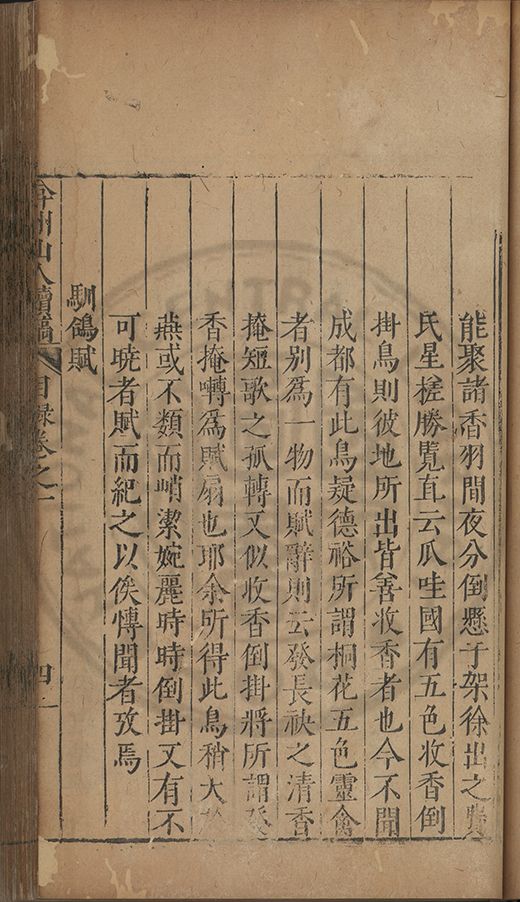 能聚諸香羽間夜分倒懸于架徐出之費
氏星槎勝覽直云瓜哇國有五色收香倒
掛鳥則彼地所出皆善收香者也今不聞
成都有此鳥疑德裕所謂桐花五色靈禽
者別為一物而賦辭則云發長袂之清香
掩短歌之孤轉又似收香倒掛將所謂發
香掩囀為賦扇也耶余所得此鳥稍大於
燕或不類而峭潔婉麗時時倒掛又有不
可曉者賦而紀之以俟博聞者攷焉
馴鴿賦
弇州山人續稿 目錄卷之一 四